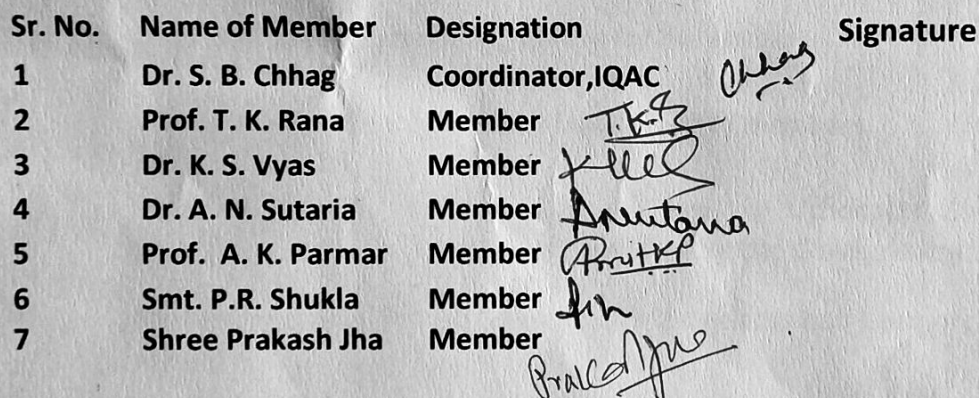 Sr. No. Name of Member Designation Signature
1 Dr. S. B. Chhag Coordinator,IQAC Chhag
2 Prof. T. K. Rana Member T.K.R
3 Dr. K. S. Vyas Member
4 Dr. A. N. Sutaria Member
5 Prof. A. K. Parmar Member AmitKP
6 Smt. P.R. Shukla Member
7 Shree Prakash Jha Member